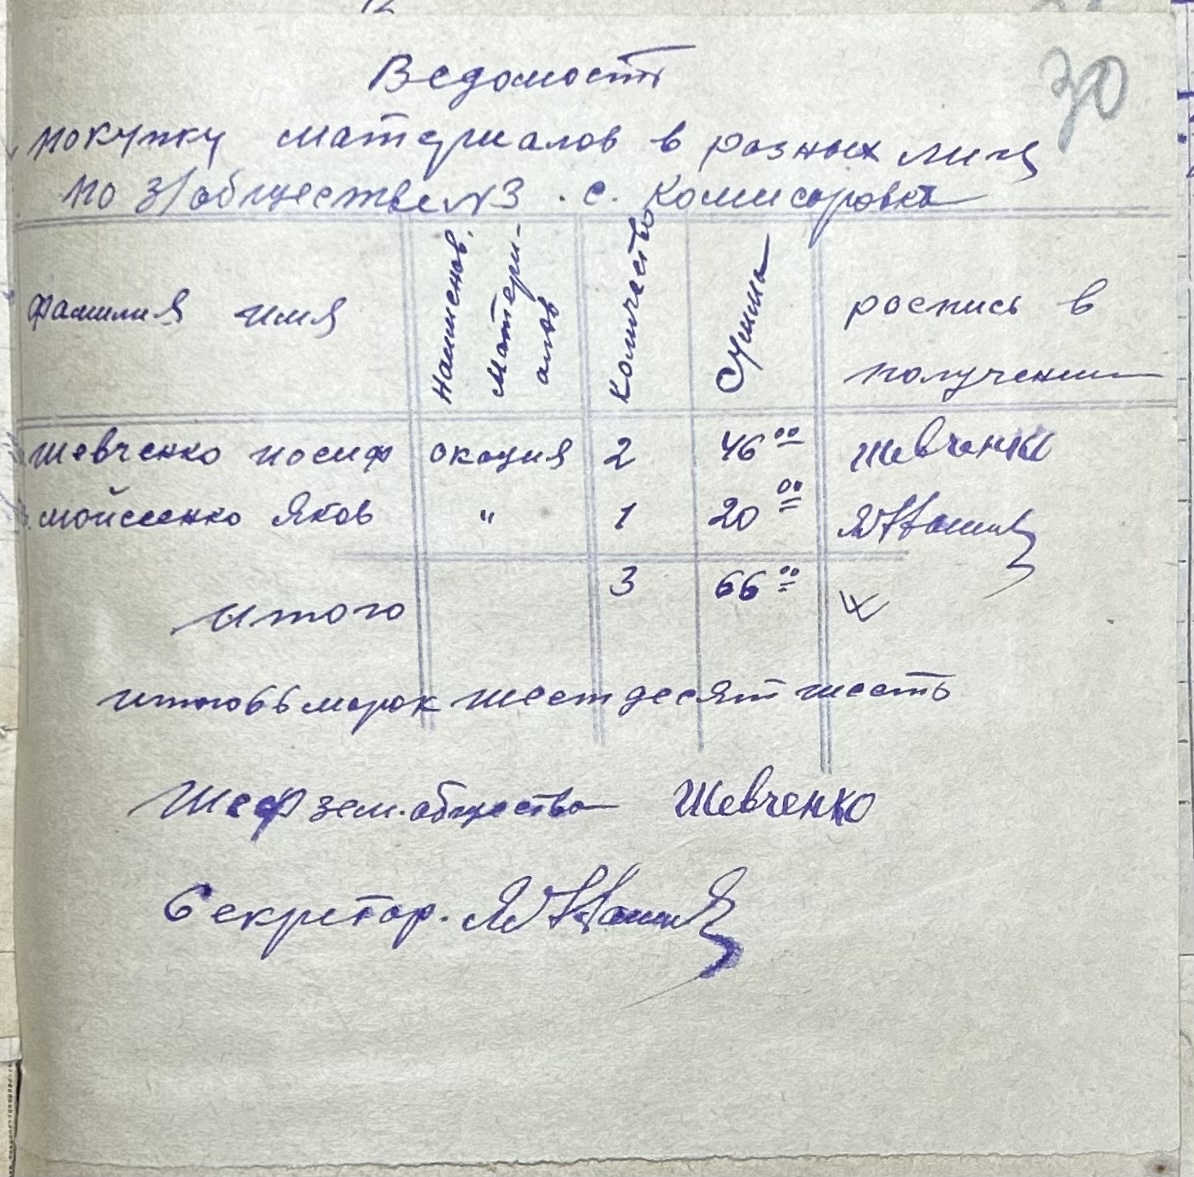 30
Ведомость
покупку материалов в разных лиц
по з/обществе №3 с. Комисаровка
фамилия имя
Наименов. Матери-
алов
Количество
Сумма
роспись в
получении
Шевченко Иосиф окация 2 46 00 Шевченко
Мойсеенко Яков " 1 20 00
Итого 3 66 00
итого 66 марок шестдесят шесть
Шеф зем. общества Шевченко
Секретар.